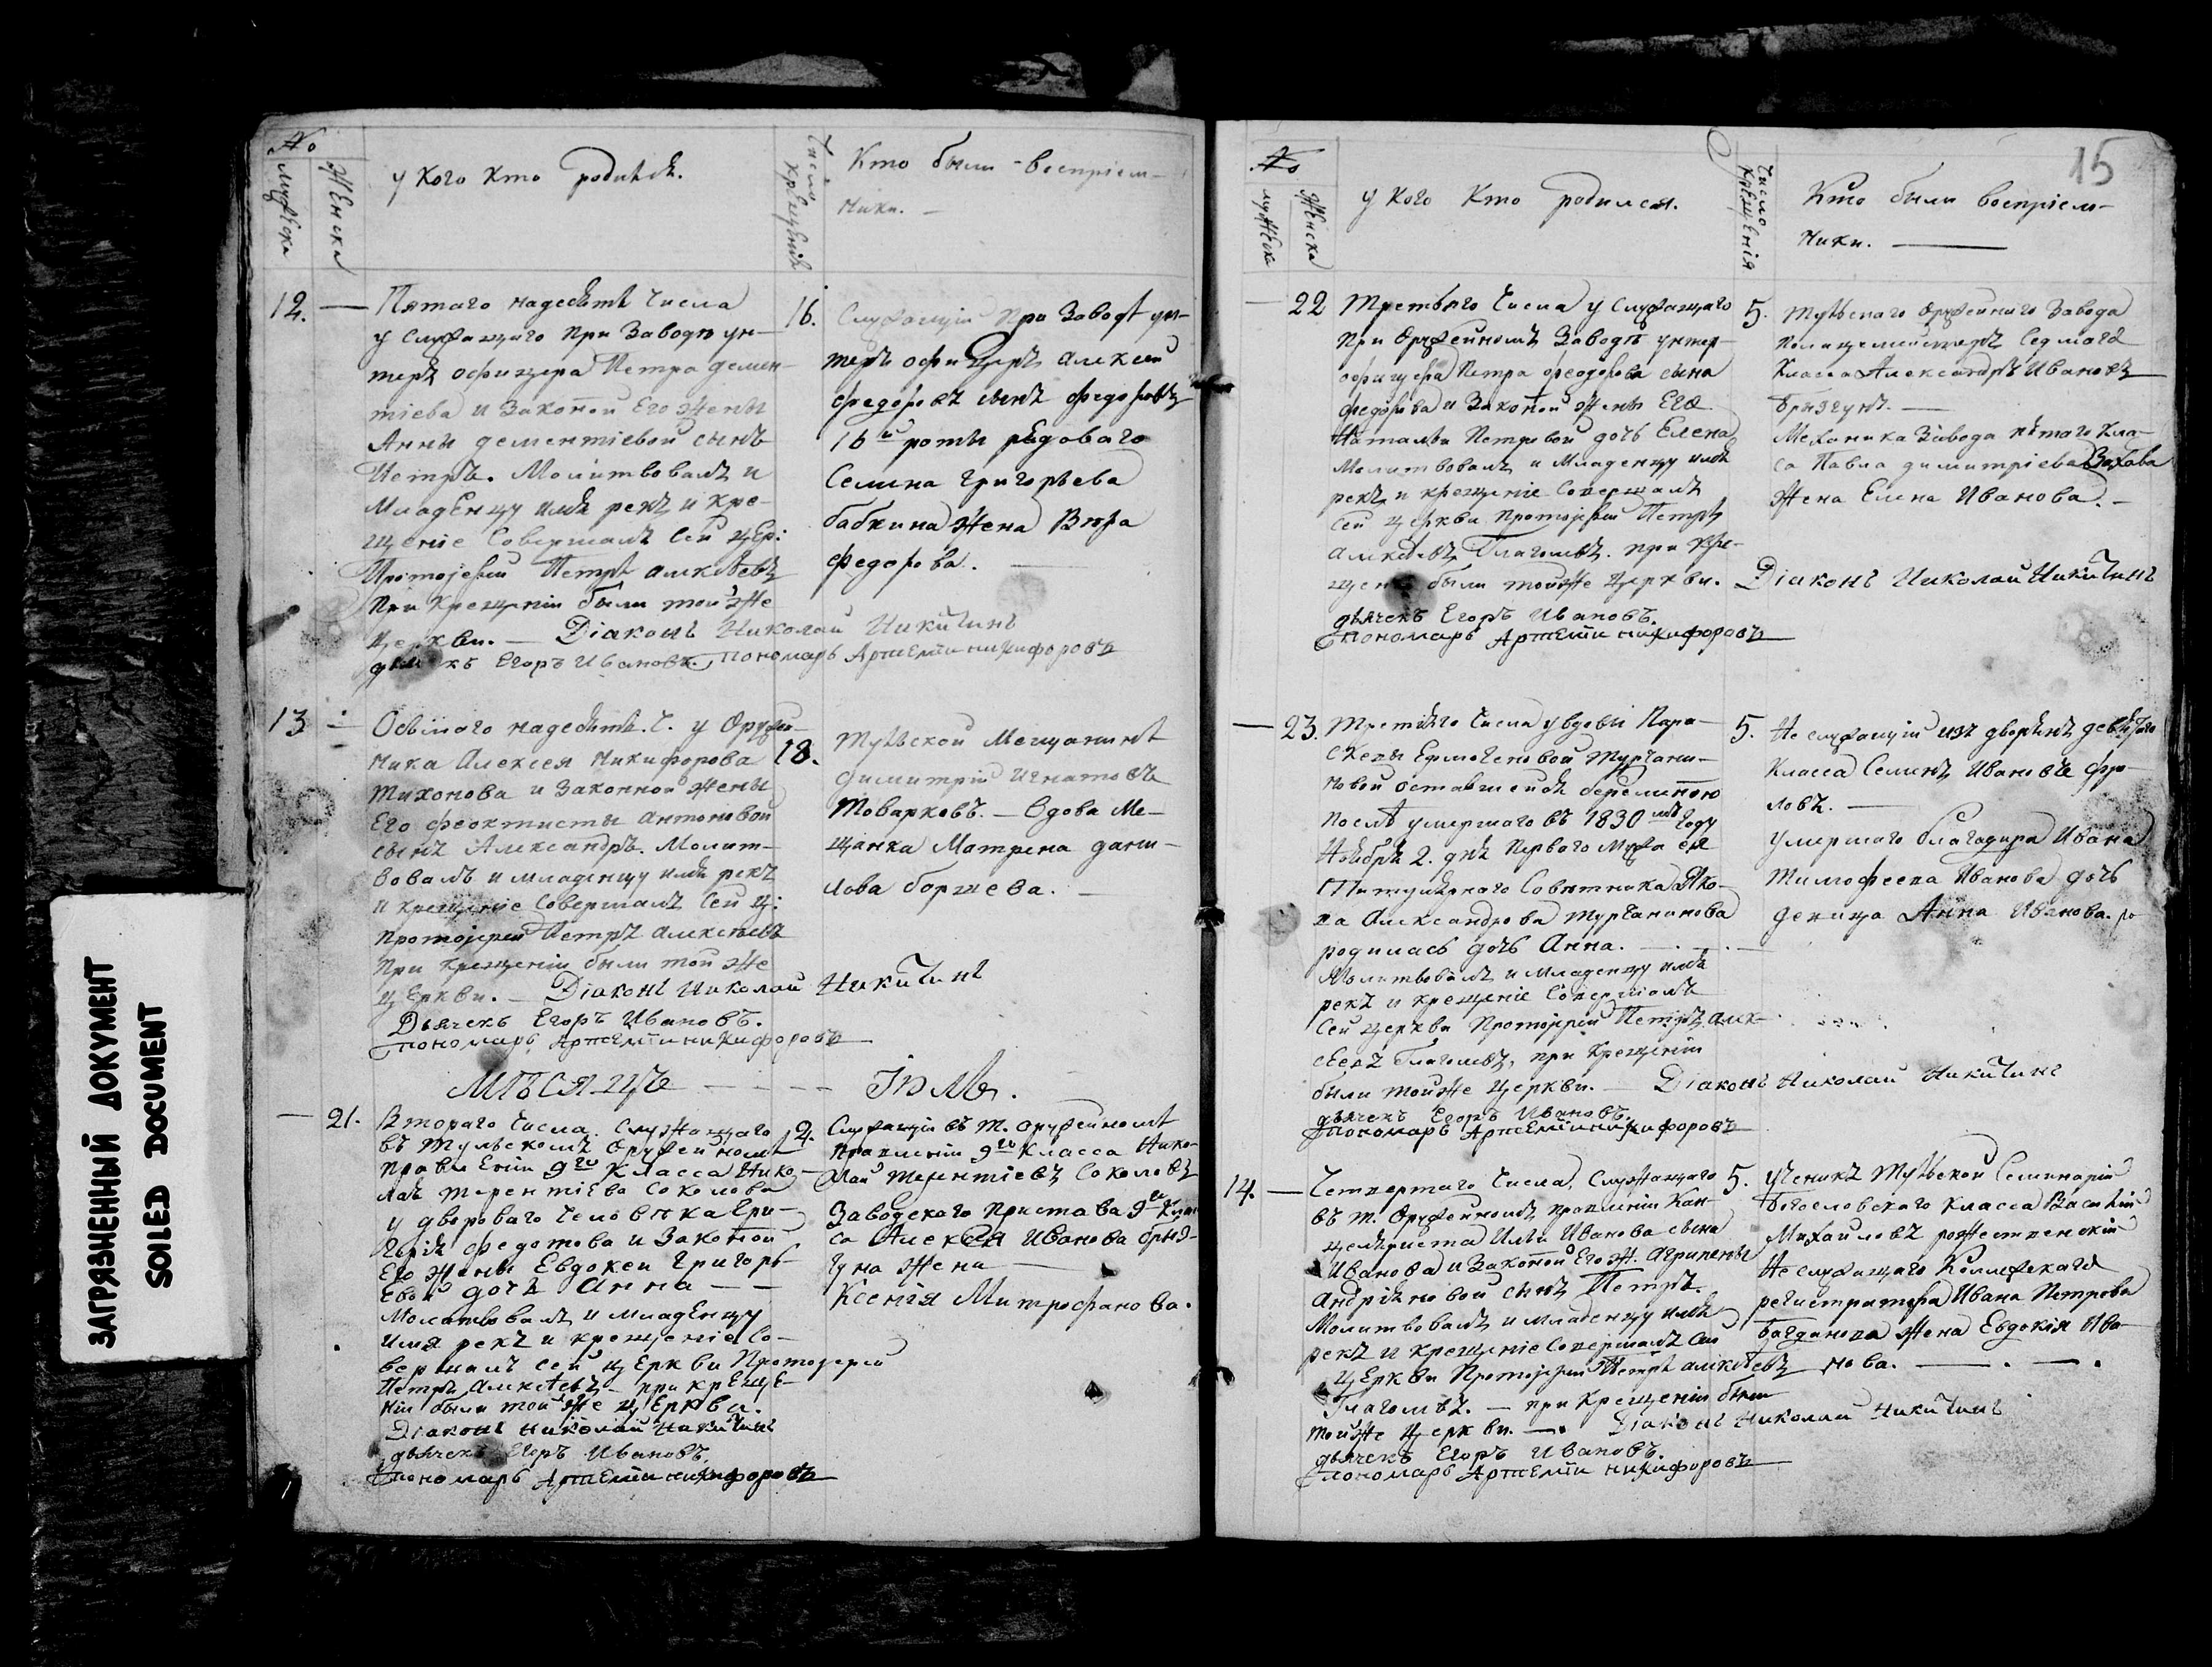 ЗАГРЯЗНЕННЫЙ ДОКУМЕНТ
SOILED DOCUMENT
№
Мужеска
Женска
у кого кто родился.
Число крещенія
Кто были воспріем-
ники. —
12. —
Пятаго надесять числа
у Служащаго при Заводѣ ун-
теръ офицера Петра демен-
тіева и Законой Его жены
Анны дементіевой сынъ
Петръ. Молитвовалъ и
Младенцу имя рекъ и кре-
щеніе Совершалъ Сей цер:
Протоіерей Петръ алексѣевъ
При крещеніи были той же
церкви. — Діаконъ Николай Никитинъ
дьячекъ Егоръ Ивановъ. пономарь Артемій никифоровъ
16.
Служащій при Заводѣ ун-
теръ офицеръ алексей
федоровъ сынъ федоровъ
16й роты рядоваго
Семина григорьева
бабкина жена Вера
федорова. —
13 —
Осьмаго надесять. Ч. у Оружей-
ника Алексея Никифорова
Тихонова и Законной жены
Его феоктисты антоновой
сынъ Александръ. Молит-
вовалъ и младенцу имя рекъ
и крещеніе Совершалъ Сей ц:
протоіерей Петръ алексѣевъ
При крещеніи были той же
церкви. — Діаконъ Николай Никитинъ
Дьячекъ Егоръ Ивановъ.
пономарь Артемій никифоровъ
18.
Тульской Мещанинъ
димитрій игнатовъ
Товарковъ. — Вдова Ме-
щанка Матрена дани-
лова боршева. —
МѢСЯЦЪ — — — — Іюль.
— 21.
Втораго Числа. Служащаго
въ Тульскомъ Оружейномъ
правленіи 9го Класса Нико-
лая терентіева Соколова
у двороваго человѣка Гри-
горія федотова и Законой
Его жены Евдокеи Григорь-
евой дочь Анна — —
Молитвовалъ и младенцу
имя рекъ и крещеніе Со-
вершалъ сей церкви Протоіерей
Петръ алексѣевъ — при креще-
ніи были той же церкви.
Діаконъ Николай Никитинъ
дьячекъ Егоръ Ивановъ.
пономарь Артемій никифоровъ
2.
Служащій въ Т. Оружейномъ
правленіи 9го Класса Нико-
лай терентіевъ Соколовъ
Заводскаго пристава 9го Клас-
са Алексея Иванова брыз-
гуна жена —
Ксенія Митрофанова.
15
№
мужеска
женска
у кого кто родился.
Число крещенія
Кто были воспріем-
ники. —
— 22
Третьяго Числа у Служащаго
при Оружейномъ Заводѣ унтер-
офицера Петра феодорова сына
федорова и Законой жены Его
Натальи Петровой дочь Елена
Молитвовалъ и Младенцу имя
рекъ и крещеніе Совершалъ
сей церкви протоіерей Петръ
алексѣевъ Глаголевъ. при кре-
щеніи были той же церкви.
дьячекъ Егоръ Ивановъ.
пономарь Артемій никифоровъ
5.
Тульскаго Оружейнаго Завода
полицеймейстеръ Седмаго
Класса Александръ Ивановъ
брызгунъ. —
Механика Завода пятаго Кла-
са Павла димитріева Захава
жена Елена Иванова. —
Діаконъ Николай Никитинъ
— 23.
Третіяго Числа у вдовы Пара-
скевы Ермогеновой Турчани-
новой оставшейся беременою
послѣ умершаго въ 1830мъ Году
Ноября 2. дня Первого Мужа ея
Титулярнаго Совѣтника Яко-
ва Александрова Турчанинова
родилась дочь Анна. —
Молитвовалъ и младенцу имя
рекъ и крещеніе Совершалъ
Сей церкви Протоіерей Петръ алек-
сѣевъ Глаголевъ, при крещеніи
были тойже церкви. — Діаконъ Николай Никитинъ
дьячекъ Егоръ Ивановъ.
пономарь Артемій никифоровъ
5.
Не служащій изъ дворянъ девятаго
класса Семенъ Ивановъ фро-
ловъ. —
Умершаго Ивана
Тимофеева Иванова дочь
девица Анна Иванова.
14. —
Четвертаго Числа, Служащаго
въ Т. Оружейномъ правленіи Кан-
целяриста Ильи Иванова сына
Иванова и Законой Его ж. Агрипены
Андріяновой сынъ Петръ.
Молитвовалъ и младенцу имя
рекъ и крещеніе Совершалъ Сей
церкви Протоіерей Петръ алексѣевъ
Глаголевъ. — при крещеніи были
тойже церкви. — Діаконъ Николай Никитинъ
дьячекъ Егоръ Ивановъ.
пономарь Артемій никифоровъ
5.
Ученикъ Тульской Семинаріи
богословскаго класса Василій
Михайловъ рождественскій
Не служащаго Коллежскаго
регистратора Ивана Петрова
багданова жена Евдокія Ива-
нова. —